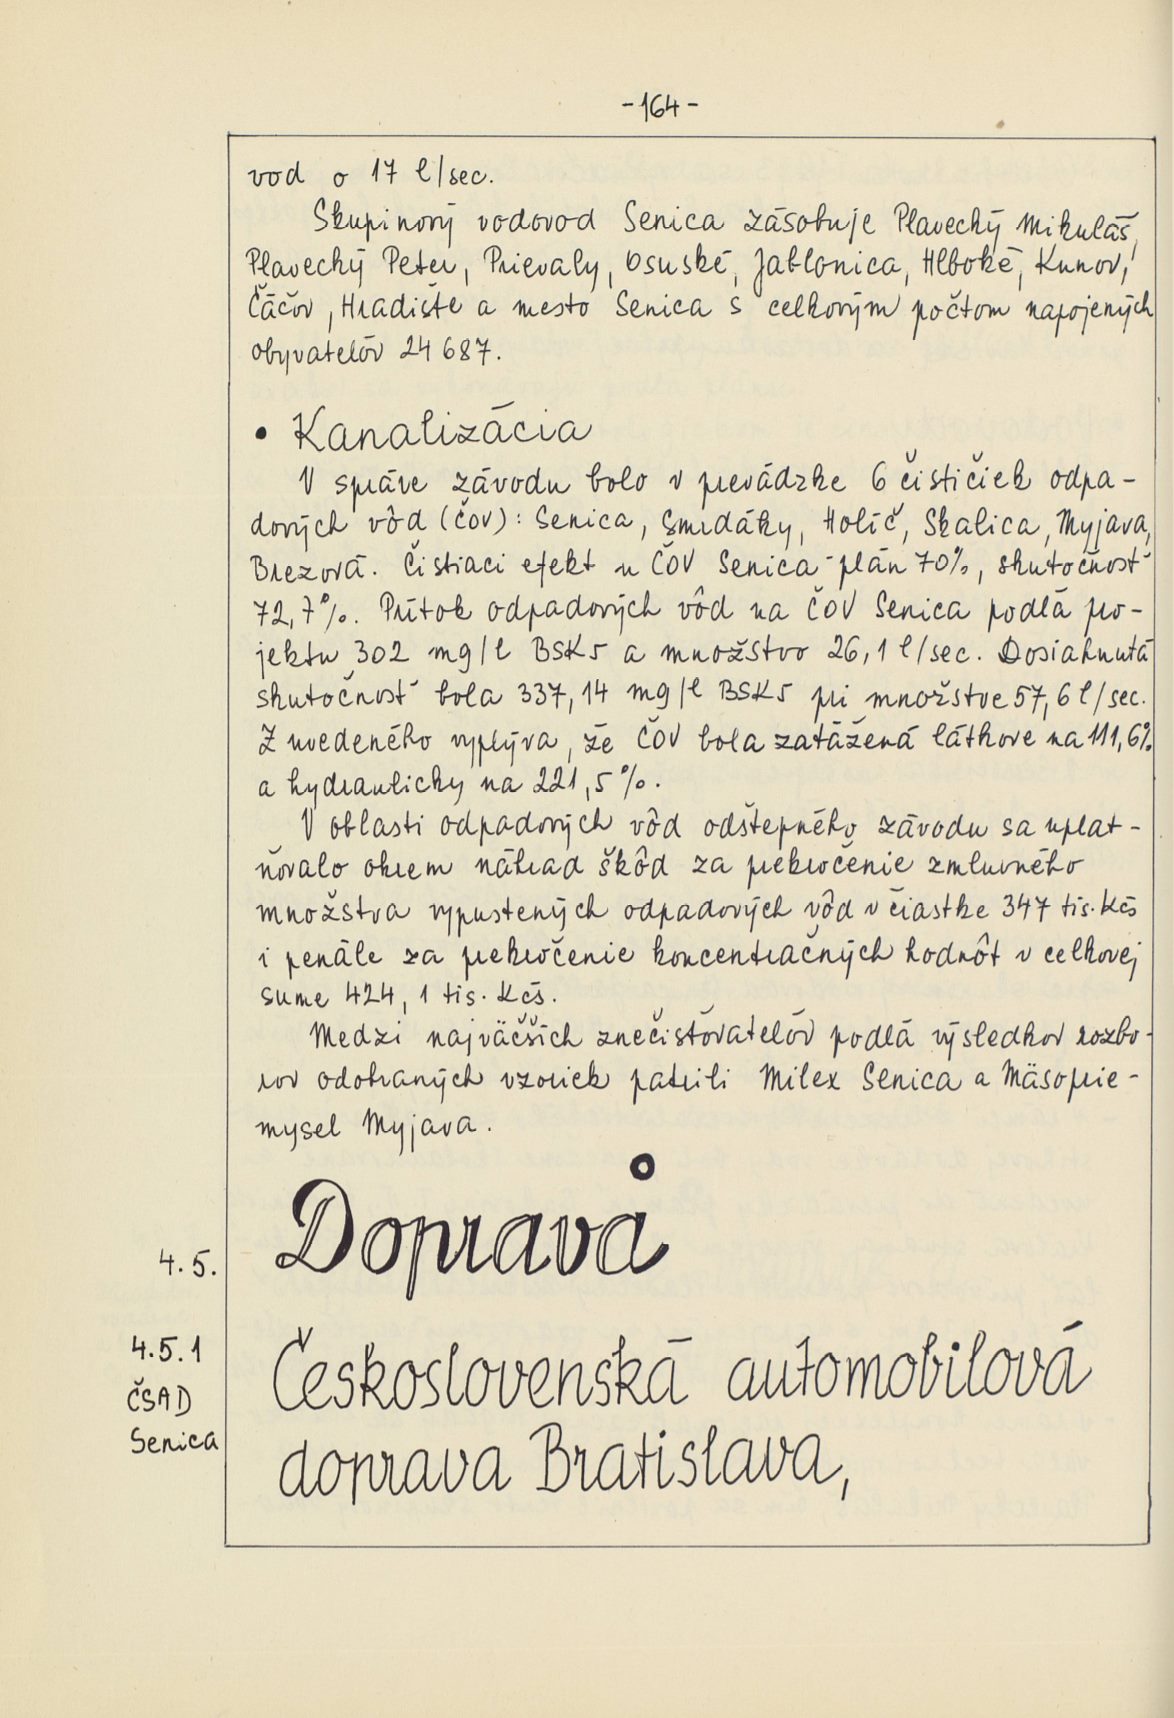 -164-
vod o 17 l/sec.
Skupinový vodovod Senica zásobuje Plavecký Mikuláš,
Plavecký Peter, Prievaly, Osuské, Jablonica, Hlboké, Kunov,
Čáčov, Hradište a mesto Senica s celkovým počtom napojených
obyvatelóv 24 687.
• Kanalizácia
V správe závodu bolo v prevádzke 6 čističiek odpa-
dových vôd (ČOV): Senica, Smrdáky, Holíč, Skalica, Myjava,
Brezová. Čistiaci efekt u ČOV Senica - plán 70%, skutočnosť
72,7%. Prítok odpadových vôd na ČOV Senica podlá pro-
jektu 302 mg/l BSK5 a množstvo 26,1 l/sec. Dosiahnutá
skutočnosť bola 337,14 mg/l BSK5 pri množstve 57,6 l/sec.
Z uvedeného vyplýva, že ČOV bola zatážená látkove na 111,6%
a hydraulicky na 221,5%.
V oblasti odpadových vôd odštepného závodu sa uplat-
ňovalo okrem náhrad škôd za prekročenie zmluvného
množstva vypustených odpadových vôd v čiastke 347 tis. Kčs
i penále za prekročenie koncentračných hodnôt v celkovej
sume 424,1 tis. Kčs.
Medzi najväčších znečisťovatelóv podlá výsledkov rozbo-
rov odobraných vzoriek patrili Milex Senica a Mäsoprie-
mysel Myjava.
4.5. Doprava
4.5.1 Československá automobilová
ČSAD
Senica doprava Bratislava,